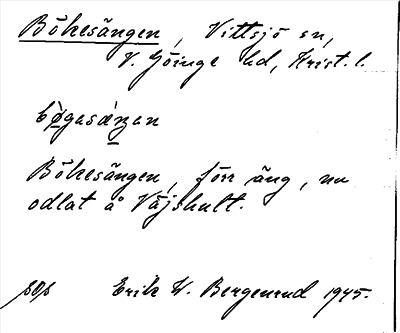 Bökesängen, Vittsjö sn,
V. Göinge hd, Krist. l.
bǿgasæŋan
Bökesängen, förr äng, nu
odlat å Väjshult.
Erik W. Bergenrud 1945.